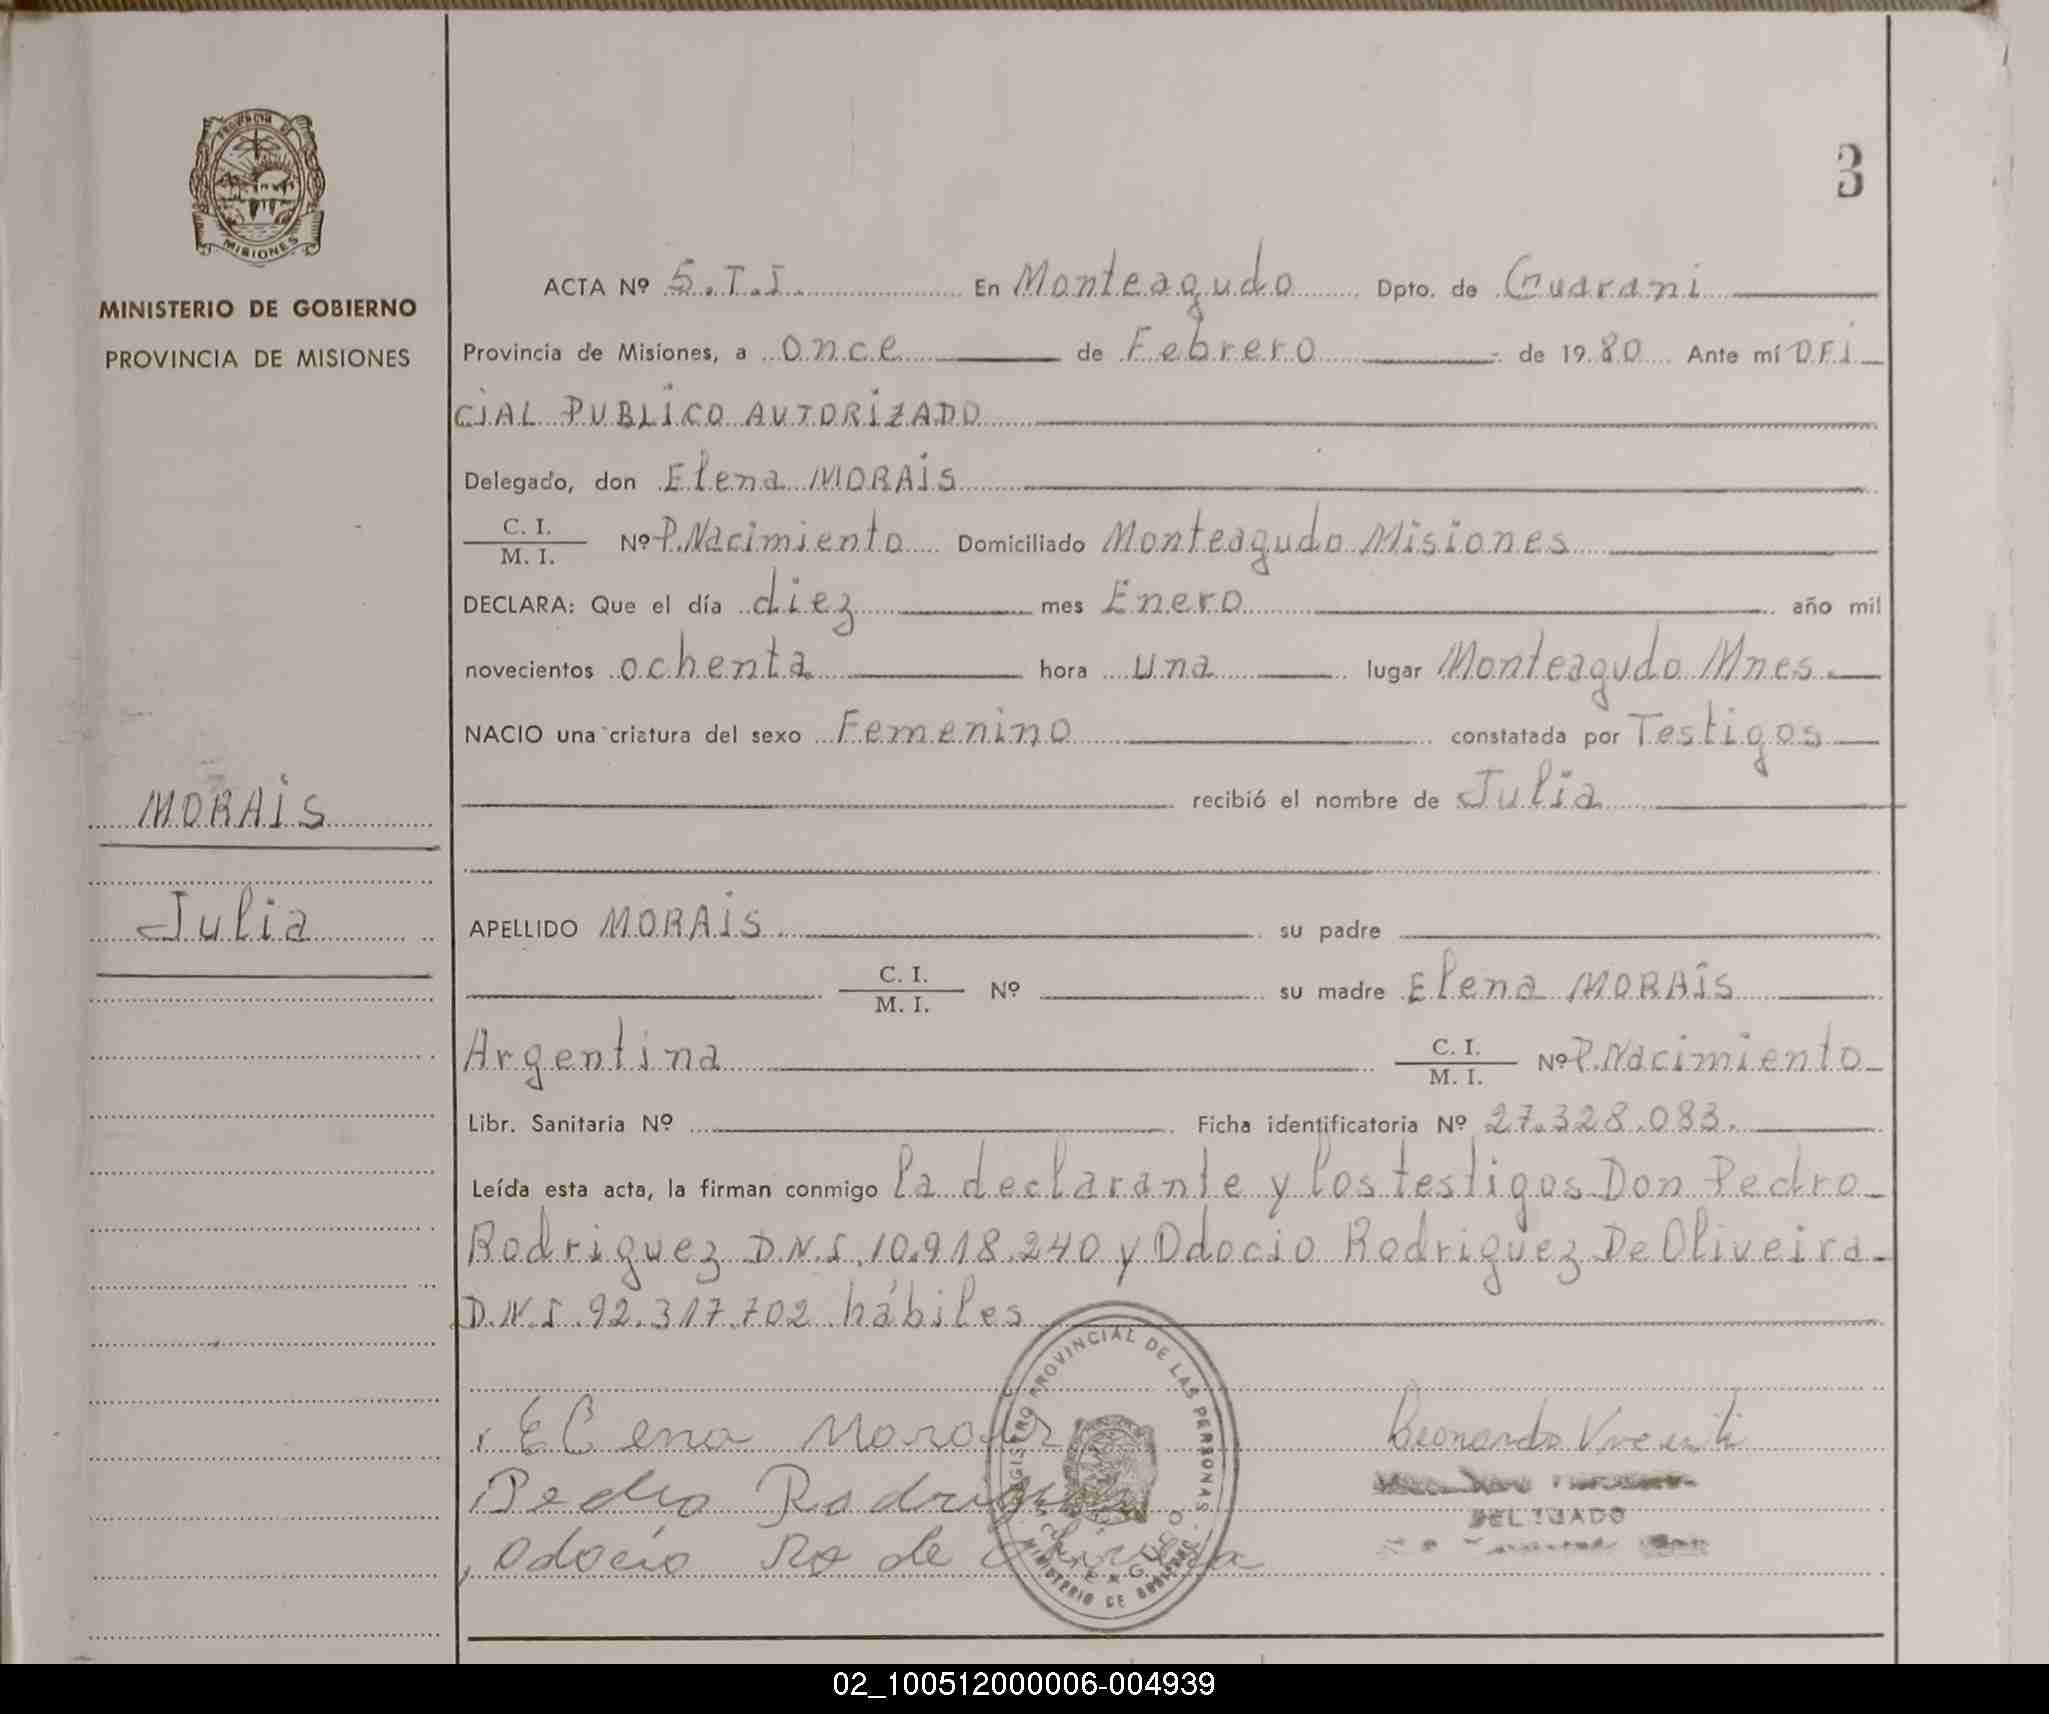 PROVINCIA DE
MISIONES
MINISTERIO DE GOBIERNO
PROVINCIA DE MISIONES
MORAIS
Julia
3
ACTA Nº 5.T.I. En Monteagudo Dpto. de Guarani
Provincia de Misiones, a once de Febrero de 1980 Ante mí OFI
CIAL PUBLICO AUTORIZADO
Delegado, don Elena MORAIS
C. I.
M. I. Nº P.Nacimiento Domiciliado Monteagudo Misiones
DECLARA: Que el día diez mes Enero año mil
novecientos ochenta hora una lugar Monteagudo Mnes.
NACIO una criatura del sexo Femenino constatada por Testigos
recibió el nombre de Julia
APELLIDO MORAIS su padre
C. I.
M. I. Nº su madre Elena MORAIS
Argentina C. I.
M. I. Nº P.Nacimiento
Libr. Sanitaria Nº Ficha identificatoria Nº 27.328.083.
Leída esta acta, la firman conmigo la declarante y los testigos Don Pedro
Rodriguez D.N.I. 10.918.240 y Odocio Rodriguez De Oliveira
D.N.I. 92.317.702 hábiles
Elena Morais
Pedro Rodriguez
Odocio Ro de Oliveira
REGISTRO PROVINCIAL DE LAS PERSONAS
MINISTERIO DE GOBIERNO
DELEGADO
02_100512000006-004939